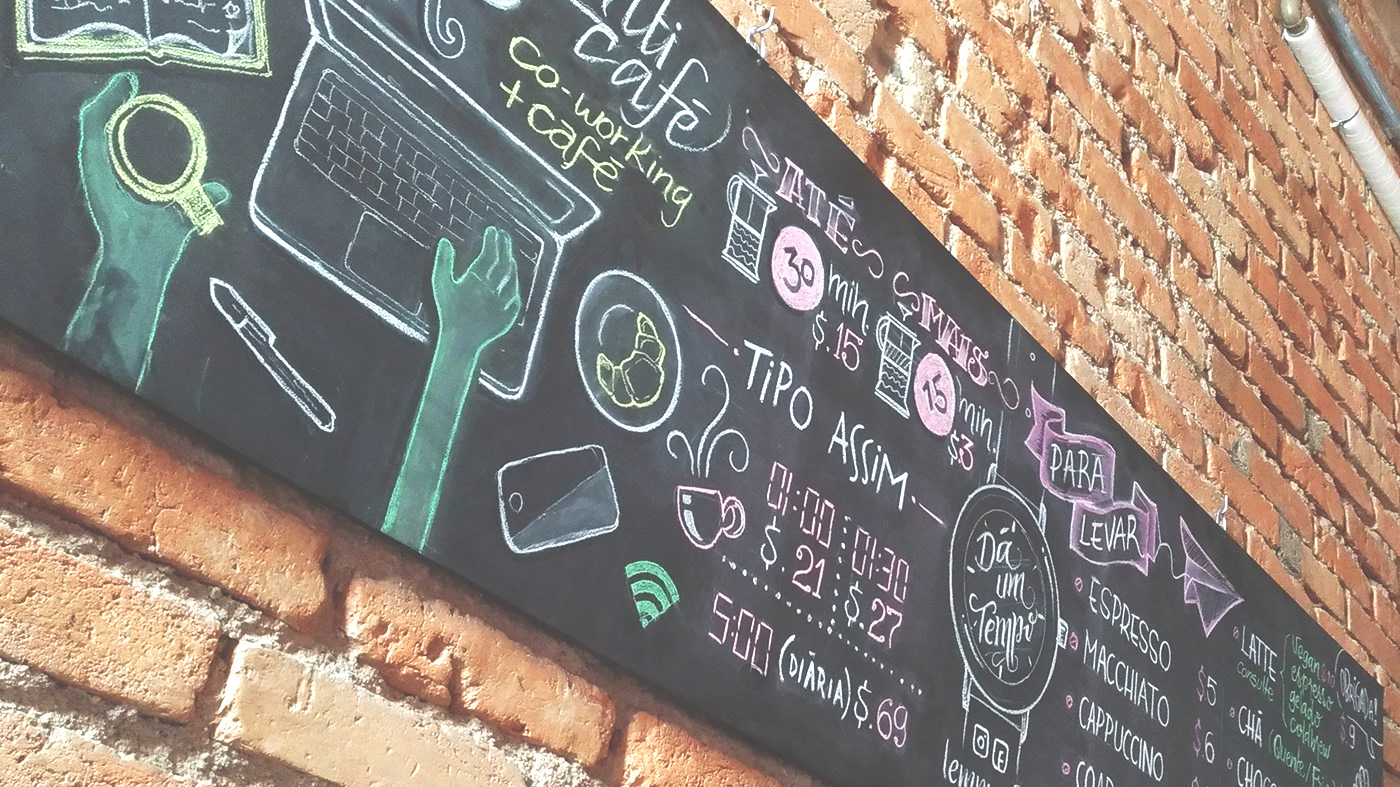 café
co-working
+ café
ATÉ
30 min
$.15
MAIS
15 min
$3
TIPO ASSIM
01:00 : 01:30
$ 21 : $.27
5:00 (DIÁRIA) $.69
Dá
um
Tempo
PARA
LEVAR
ESPRESSO
MACCHIATO $5
CAPPUCCINO $6
LATTE
consulte
Vegan
espresso
gelado
$9
CHÁ (Quente/